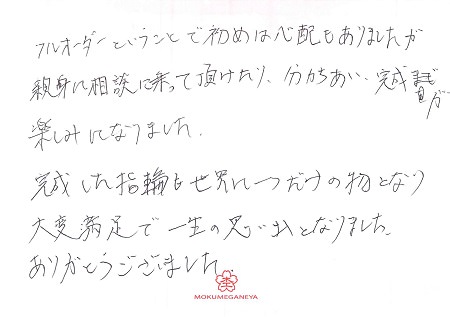 フルオーダーということで初めは心配もありましたが
親身に相談に乗って頂けたり、分かちあい、完成までが
楽しみになりました。
完成した指輪も世界に一つだけの物となり
大変満足で一生の思い出となりました。
ありがとうございました。
MOKUMEGANEYA